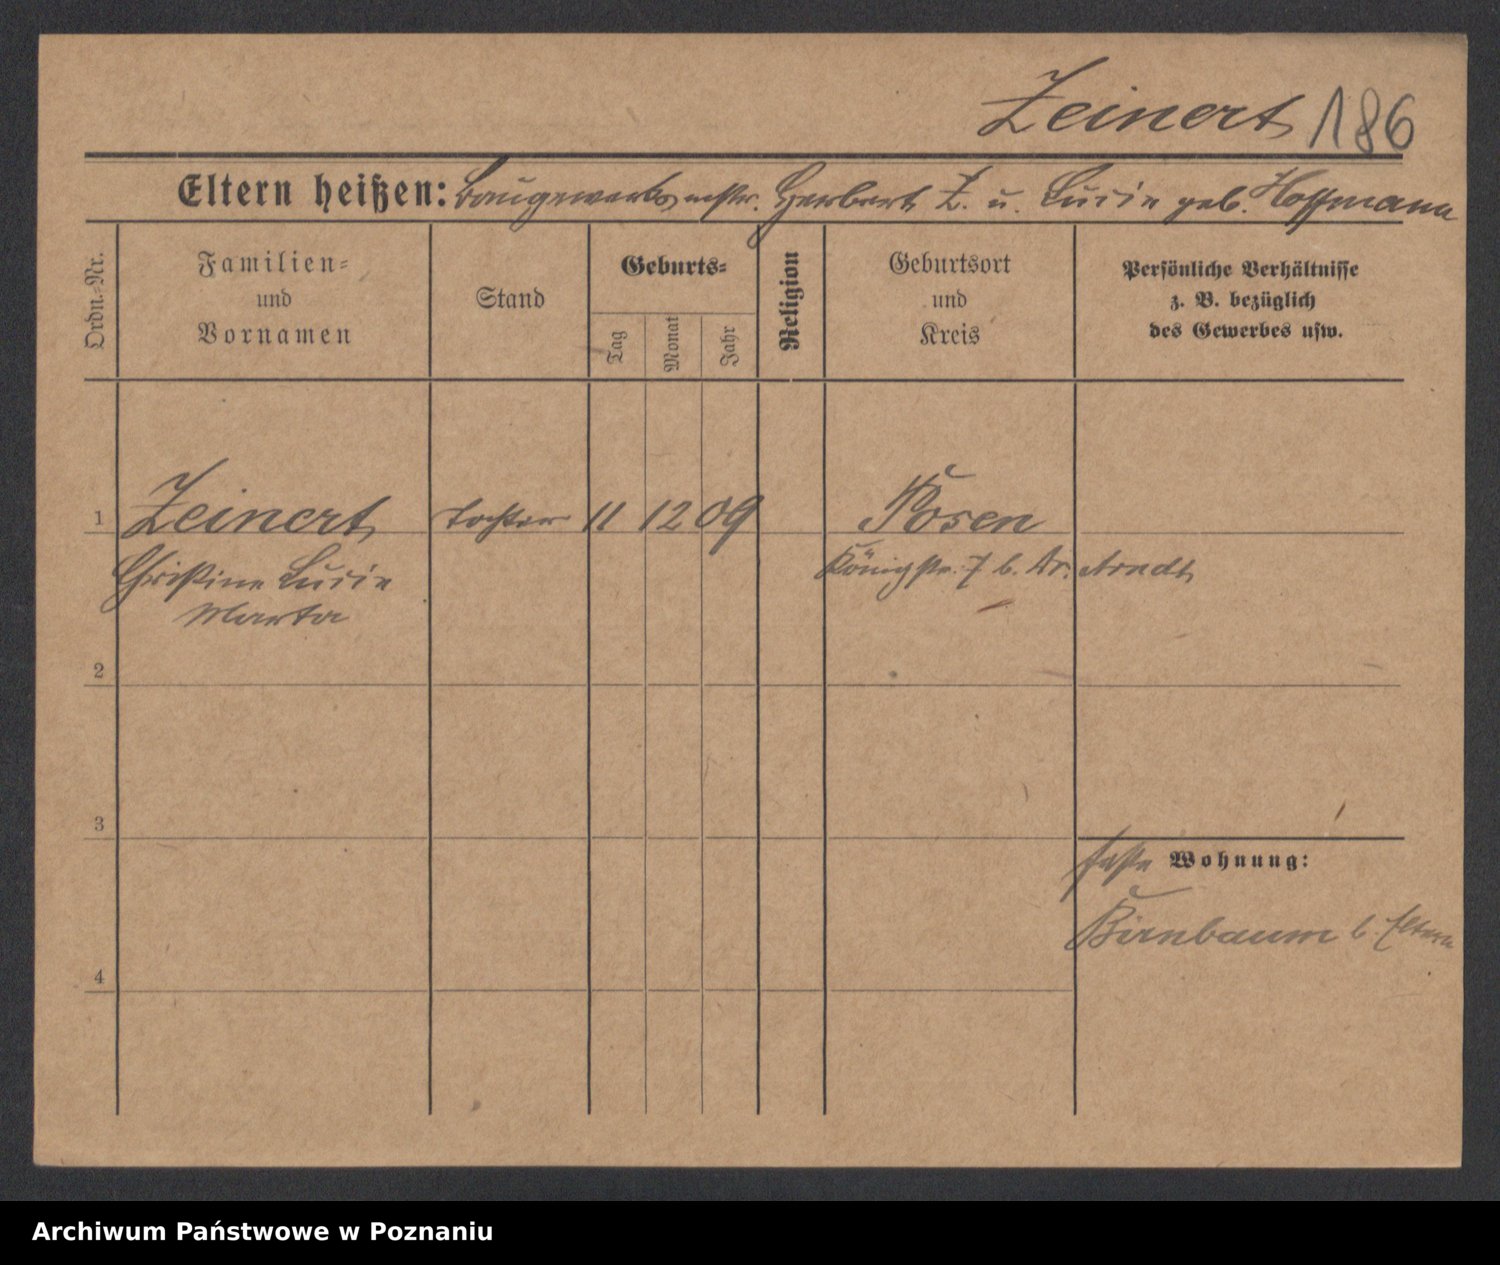 Zeinert 186
Eltern heißen: Baugewerksmstr. Herbert Z. u. Lucie geb. Hoffmann
Ordn.-Nr.
Familien-
und
Vornamen
Stand
Geburts-
Tag
Monat
Jahr
Religion
Geburtsort
und
Kreis
Persönliche Verhältnisse
z. B. bezüglich
des Gewerbes usw.
1 Zeinert Tochter 11 12 09 Posen
Christine Lucie Königstr. 7 b. Dr. Arndt
Marta
2
3
feste Wohnung:
Birnbaum b. Eltern
4
Archiwum Państwowe w Poznaniu